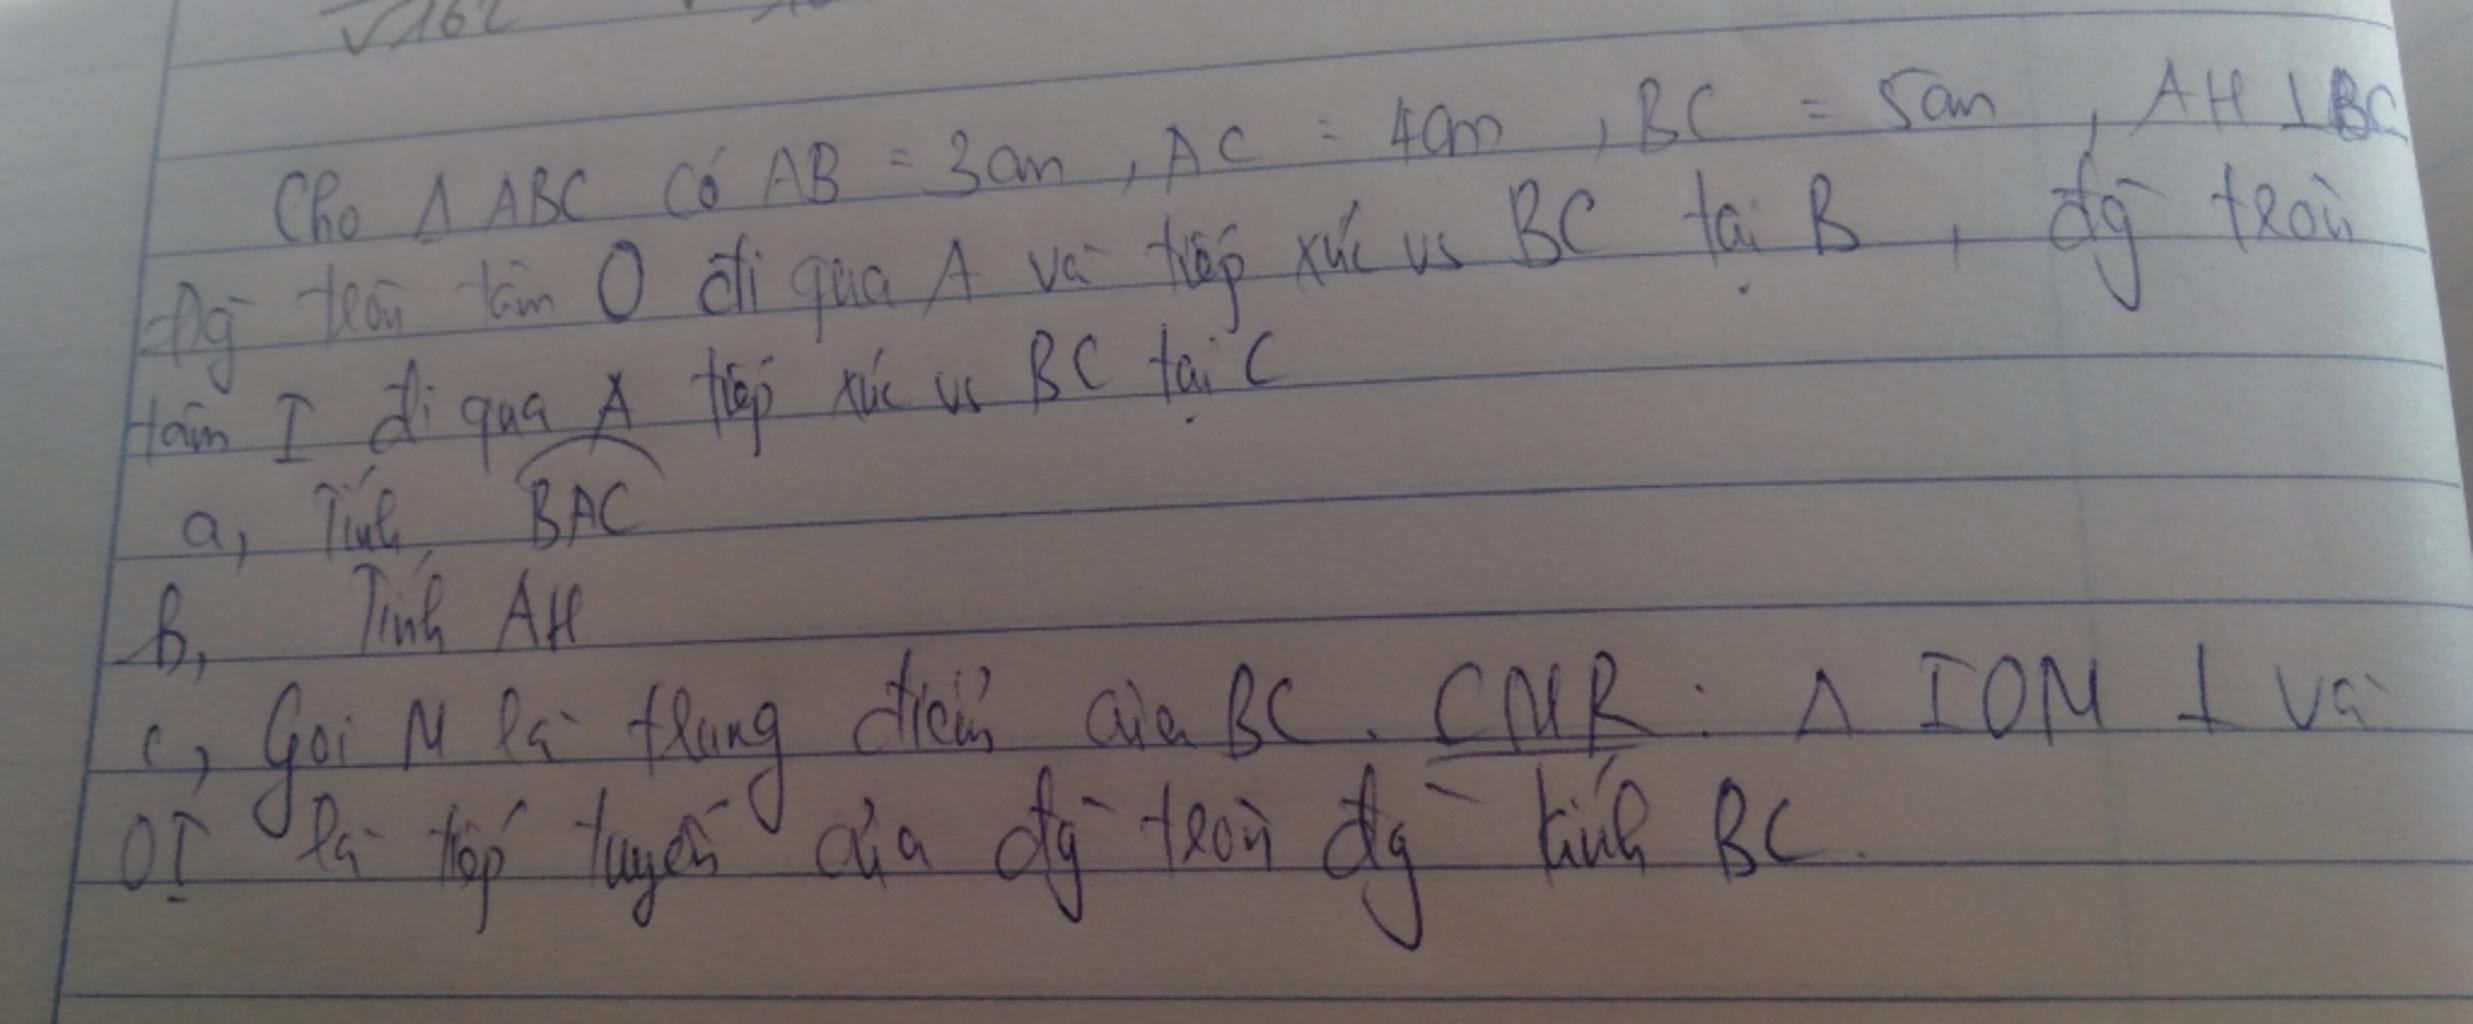 √162
Cho Δ ABC có AB = 3cm, AC = 4cm, BC = 5cm, AH ⊥ BC
Đg̀ tròn tâm O đi qua A và tiếp xúc vs BC tại B, đg̀ tròn
tâm I đi qua A tiếp xúc vs BC tại C
a, Tính BAC
b, Tính AH
c, Gọi M là trung điểm của BC. CMR: Δ IOM ⊥ và
OI là tiếp tuyến của đg̀ tròn đg̀ kính BC.